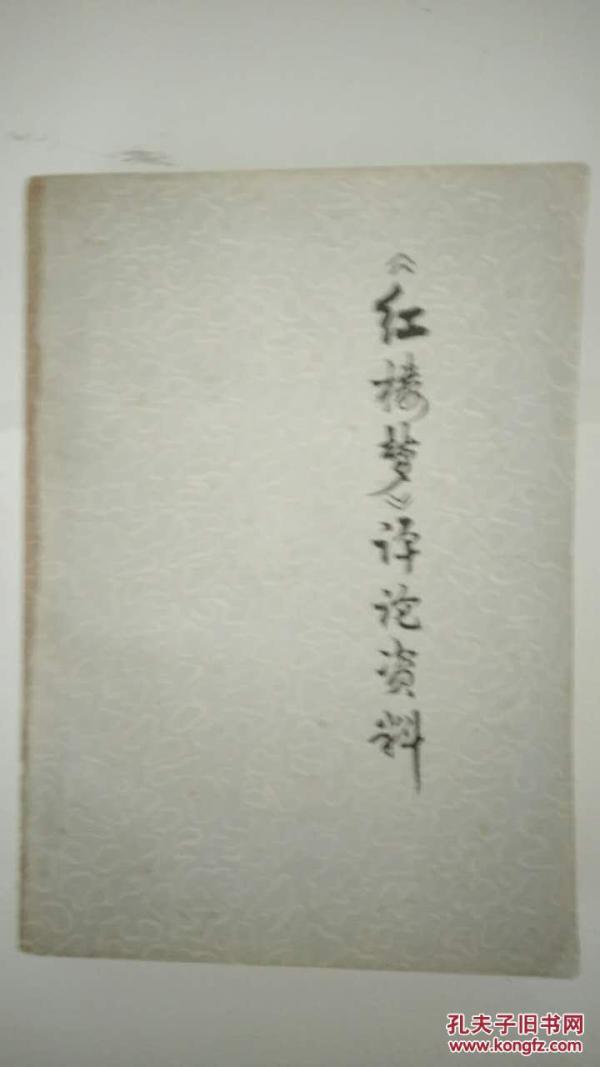 《红楼梦》评论资料
孔夫子旧书网
www.kongfz.com